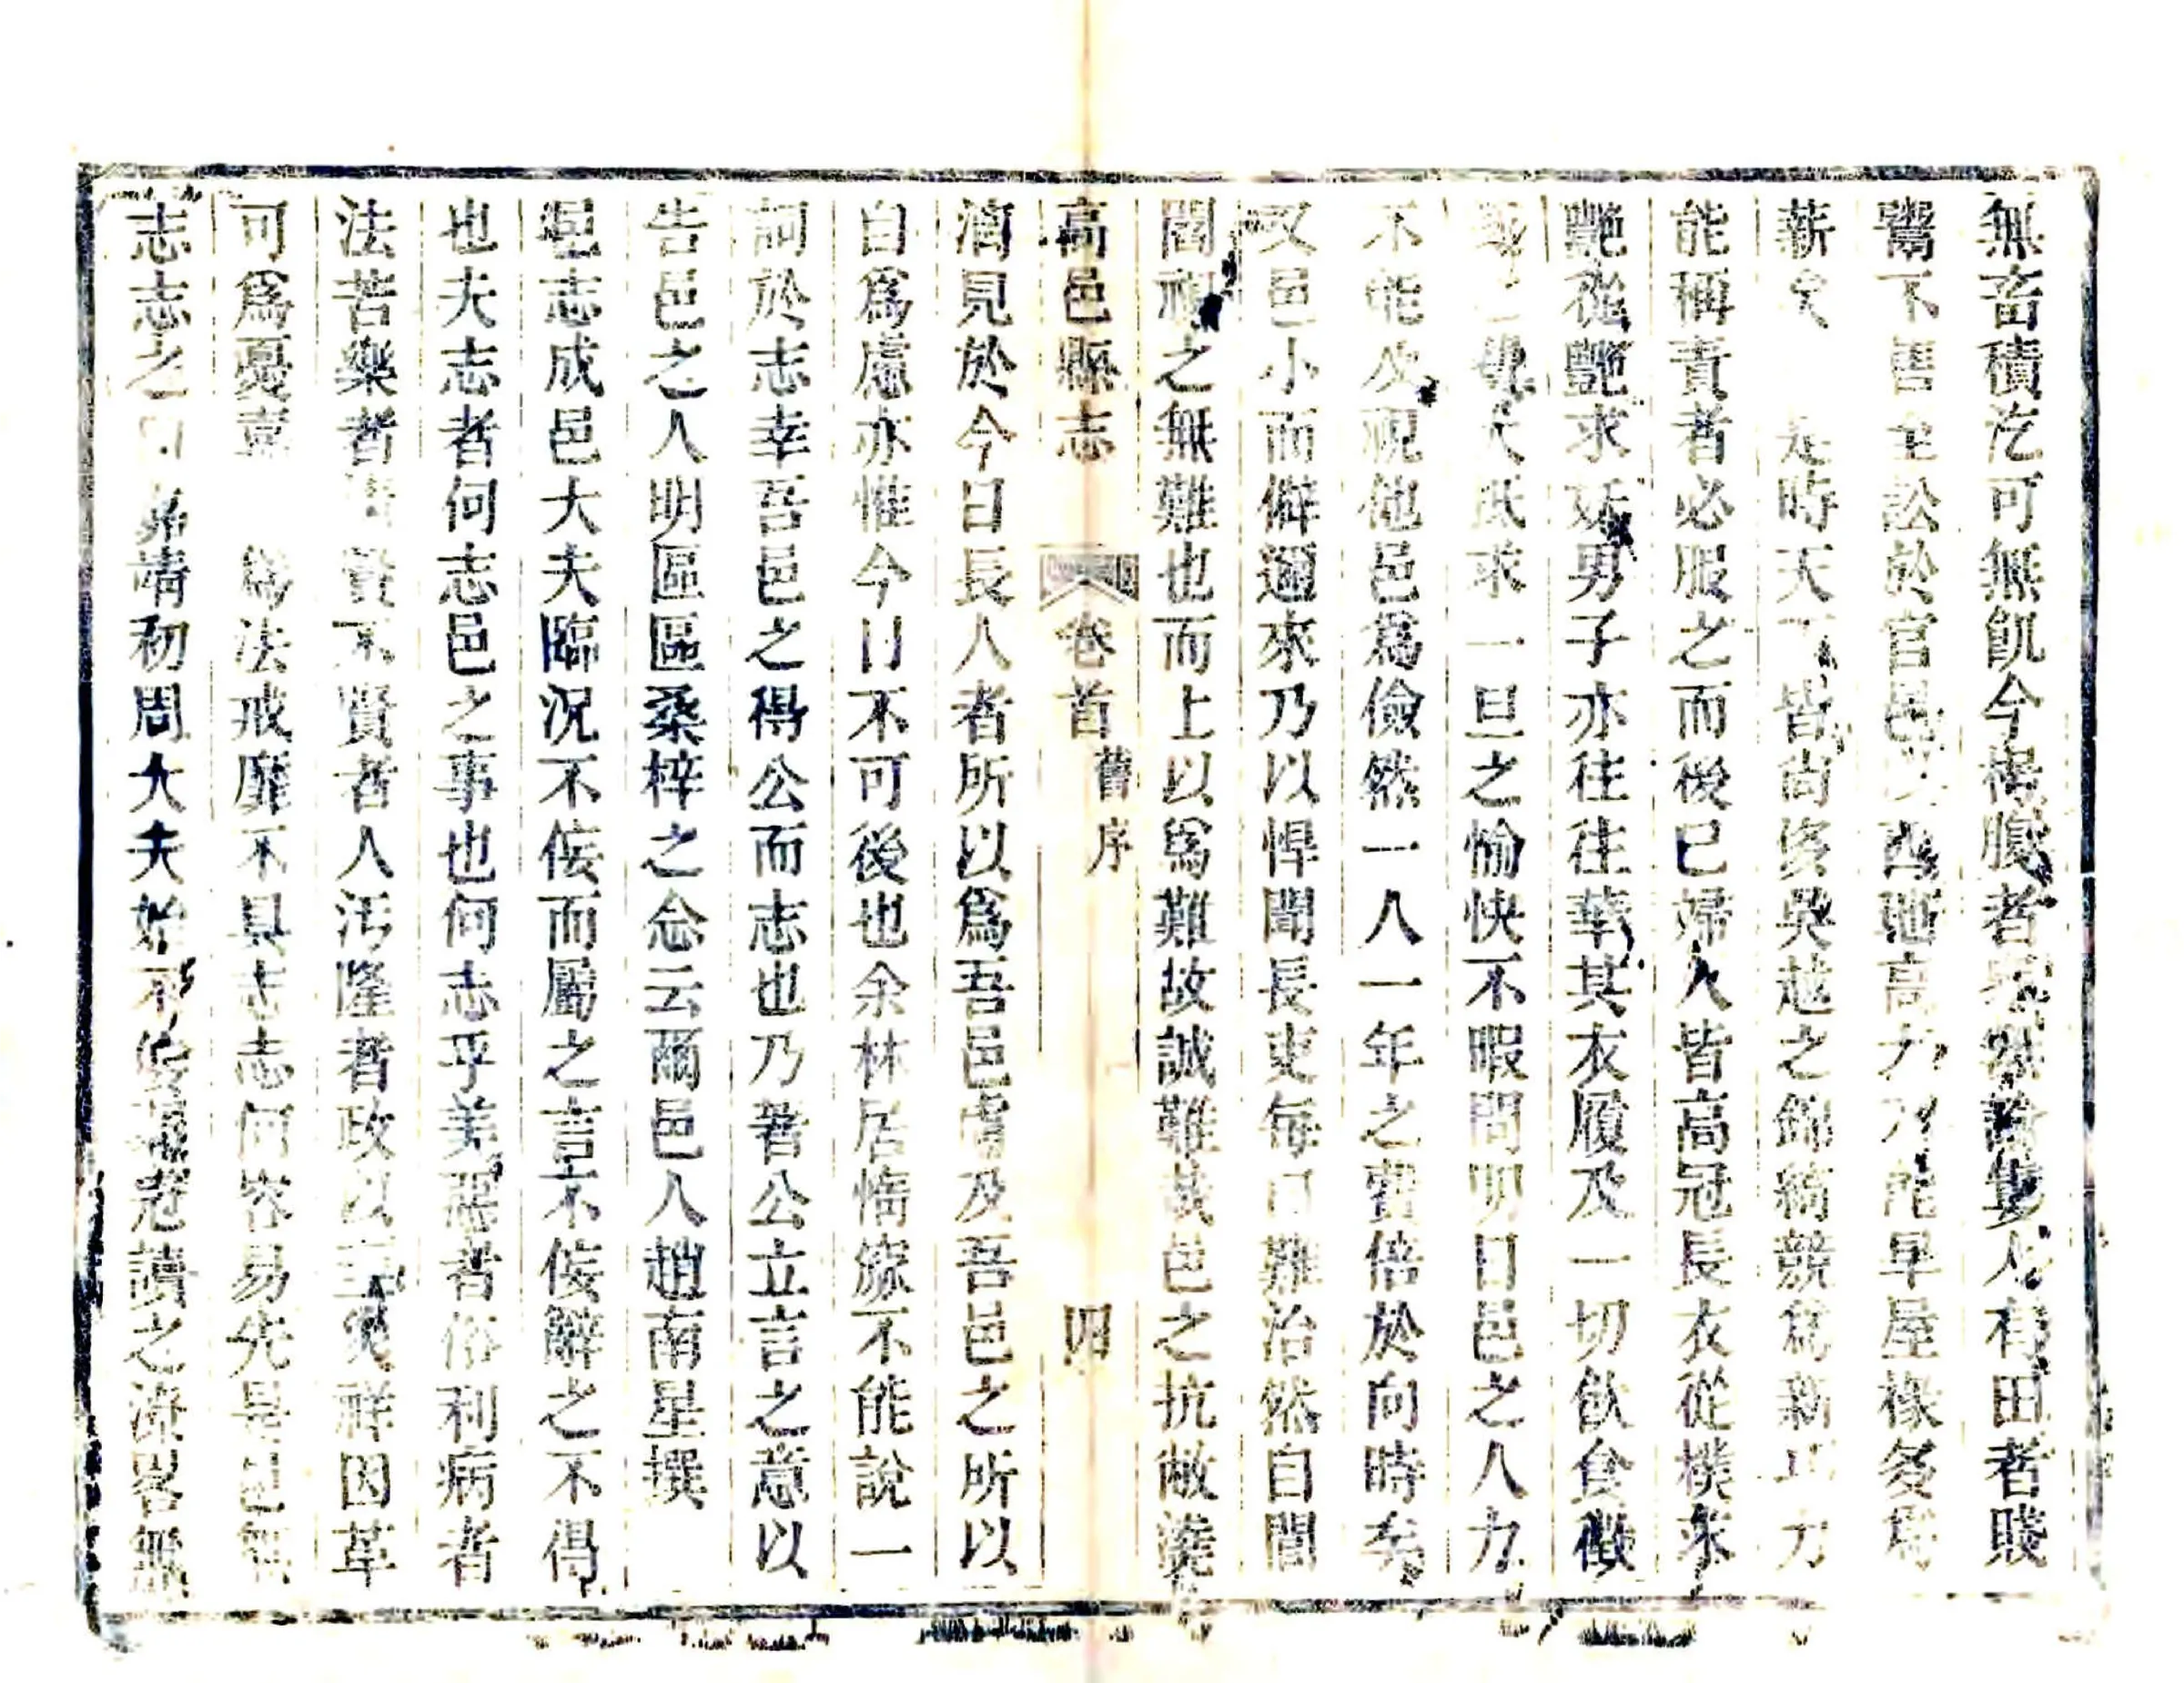 無畜積汔可無飢今枵腹者人有田者賤
鬻不售至訟於官邑西地高早屋椽多爲
薪矣是時天下皆尚侈吳越之錦綺競爲新力
能稱責者必服之而後已婦人皆高冠長衣從樸來
艷從艷求妖男子亦往往華其衣履及一切飲食微
大氐求一旦之愉快不暇問明日邑之人力
不能及視他邑爲儉然一人一年之費倍於向時矣
又邑小而僻邇來乃以悍聞長吏每日難治然自間
閻視之無難也而上以爲難故誠難哉邑之抗敝澆
高邑縣志 卷首 舊序 四
漓見於今日長人者所以爲吾邑慮及吾邑之所以
自爲慮亦惟今日不可後也余林居惰窳不能說一
詞於志幸吾邑之得公而志也乃著公立言之意以
告邑之人明區區桑梓之念云爾邑人趙南星撰
邑志成邑大夫臨況不佞而屬之言不佞辭之不得
也夫志者何志邑之事也何志乎美惡者俗利病者
法苦樂者賢不賢者人汚隆者政以祥因革
可爲憂喜爲法戒靡不具志志何容易先是邑無
志志之自靖初周大夫始不佞卷讀之濟畧無